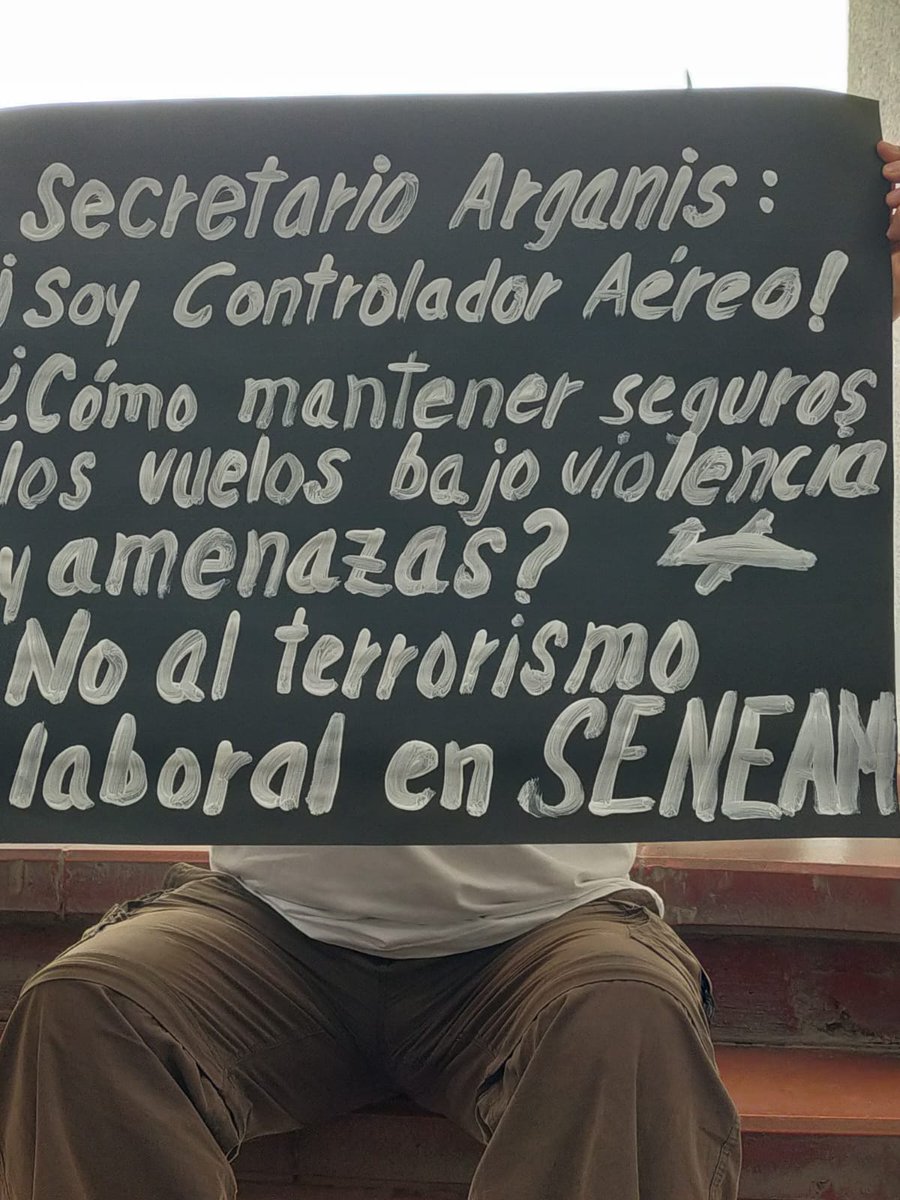 Secretario Arganis:
¡Soy Controlador Aéreo!
¿Cómo mantener seguros
los vuelos bajo violencia
y amenazas?
No al terrorismo
laboral en SENEAM